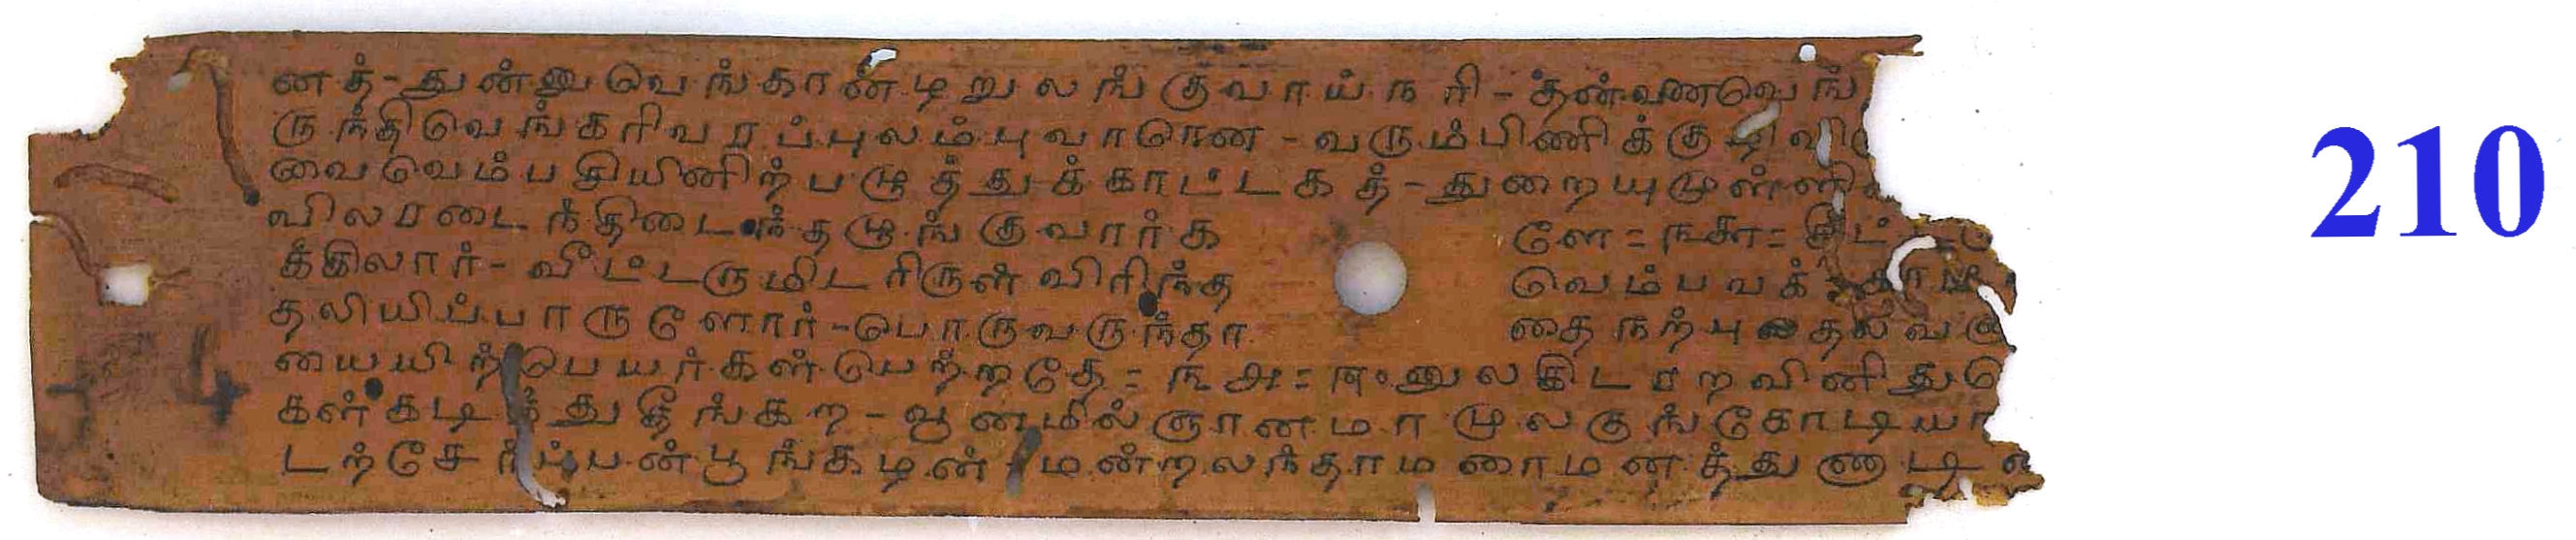 னத்-துன்னுவெங்கான்டிறுலங்குவாய்நரி-தன்வணவெங்
ருந்திவெங்கரிவரப்புலம்புவாரென-வரும்பிணிக்குழிவி
வைவெம்பசியினிற்பழூத்துக்காட்டகத்-துறையுமுள்ளி
விலரடைந்திடை தழூங்குவார்க ளே=௩௮=
க்கிலார்-வீட்டருமிடரிருள்விரிந்த வெம்பவக்
தலியிப்பாருளோர்-பொருவருந்தா தைநற்புதலவ
யையயிற்பெயர்கள்பெற்றதே=௩௯=௪௦னுலகிடரறவினிது
கள்கடி துதீங்கற-வூனமில்ஞானமாமுலகுங்கோடியா
டற்சேர்ப்பன்பூங்கழன்-மன்றலந்தாமரைமனத்துணடி
210